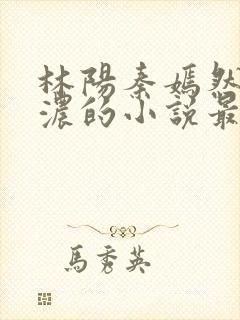 林陽秦嫣然
濃的小說最
馬秀英